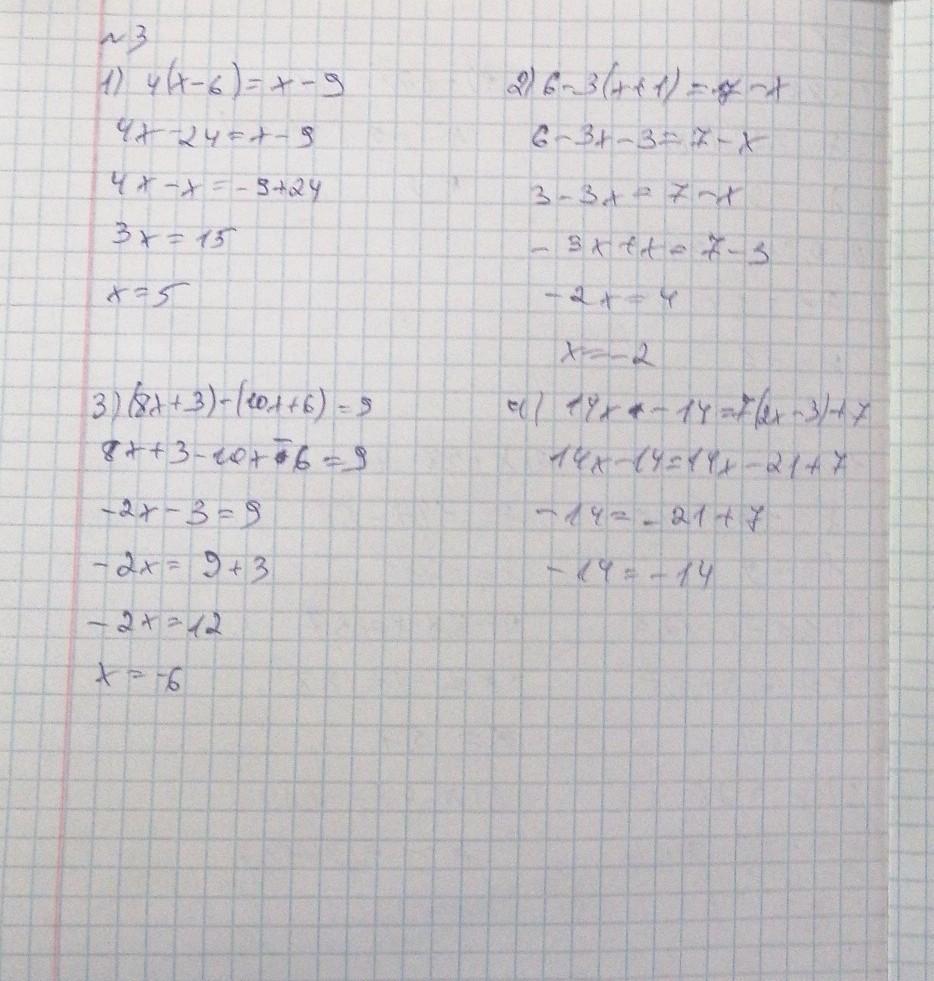 ~ 3
1) 4(x-6)=x-9
4x-24=x-9
4x-x=-9+24
3x=15
x=5
2) 6-3(x+1)=7-x
6-3x-3=7-x
3-3x=7-x
-3x+x=7-3
-2x=4
x=-2
3) (8x+3)-(10x+6)=9
8x+3-10x-6=9
-2x-3=9
-2x=9+3
-2x=12
x=-6
4) 14x-14=7(2x-3)+7
14x-14=14x-21+7
-14=-21+7
-14=-14